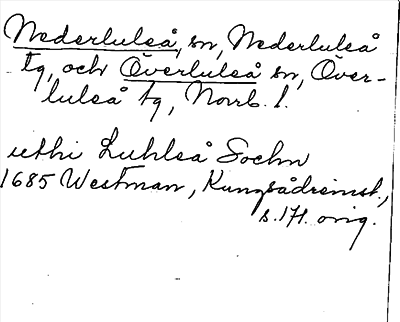 Nederluleå, sn, Nederluleå
tg, och Överluleå sn, Över-
luleå tg, Norrb. l.
uthi Luhleå Sochn
1685 Westman, Kungsådreinst.,
s. 171. orig.